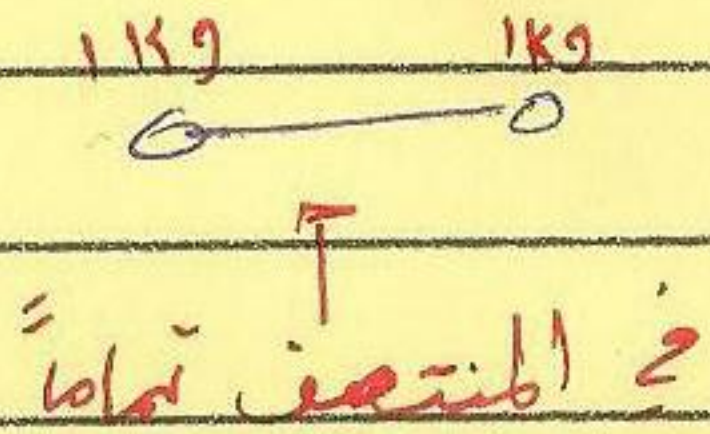 1 Kg 1 Kg
في المنتصف تماماً